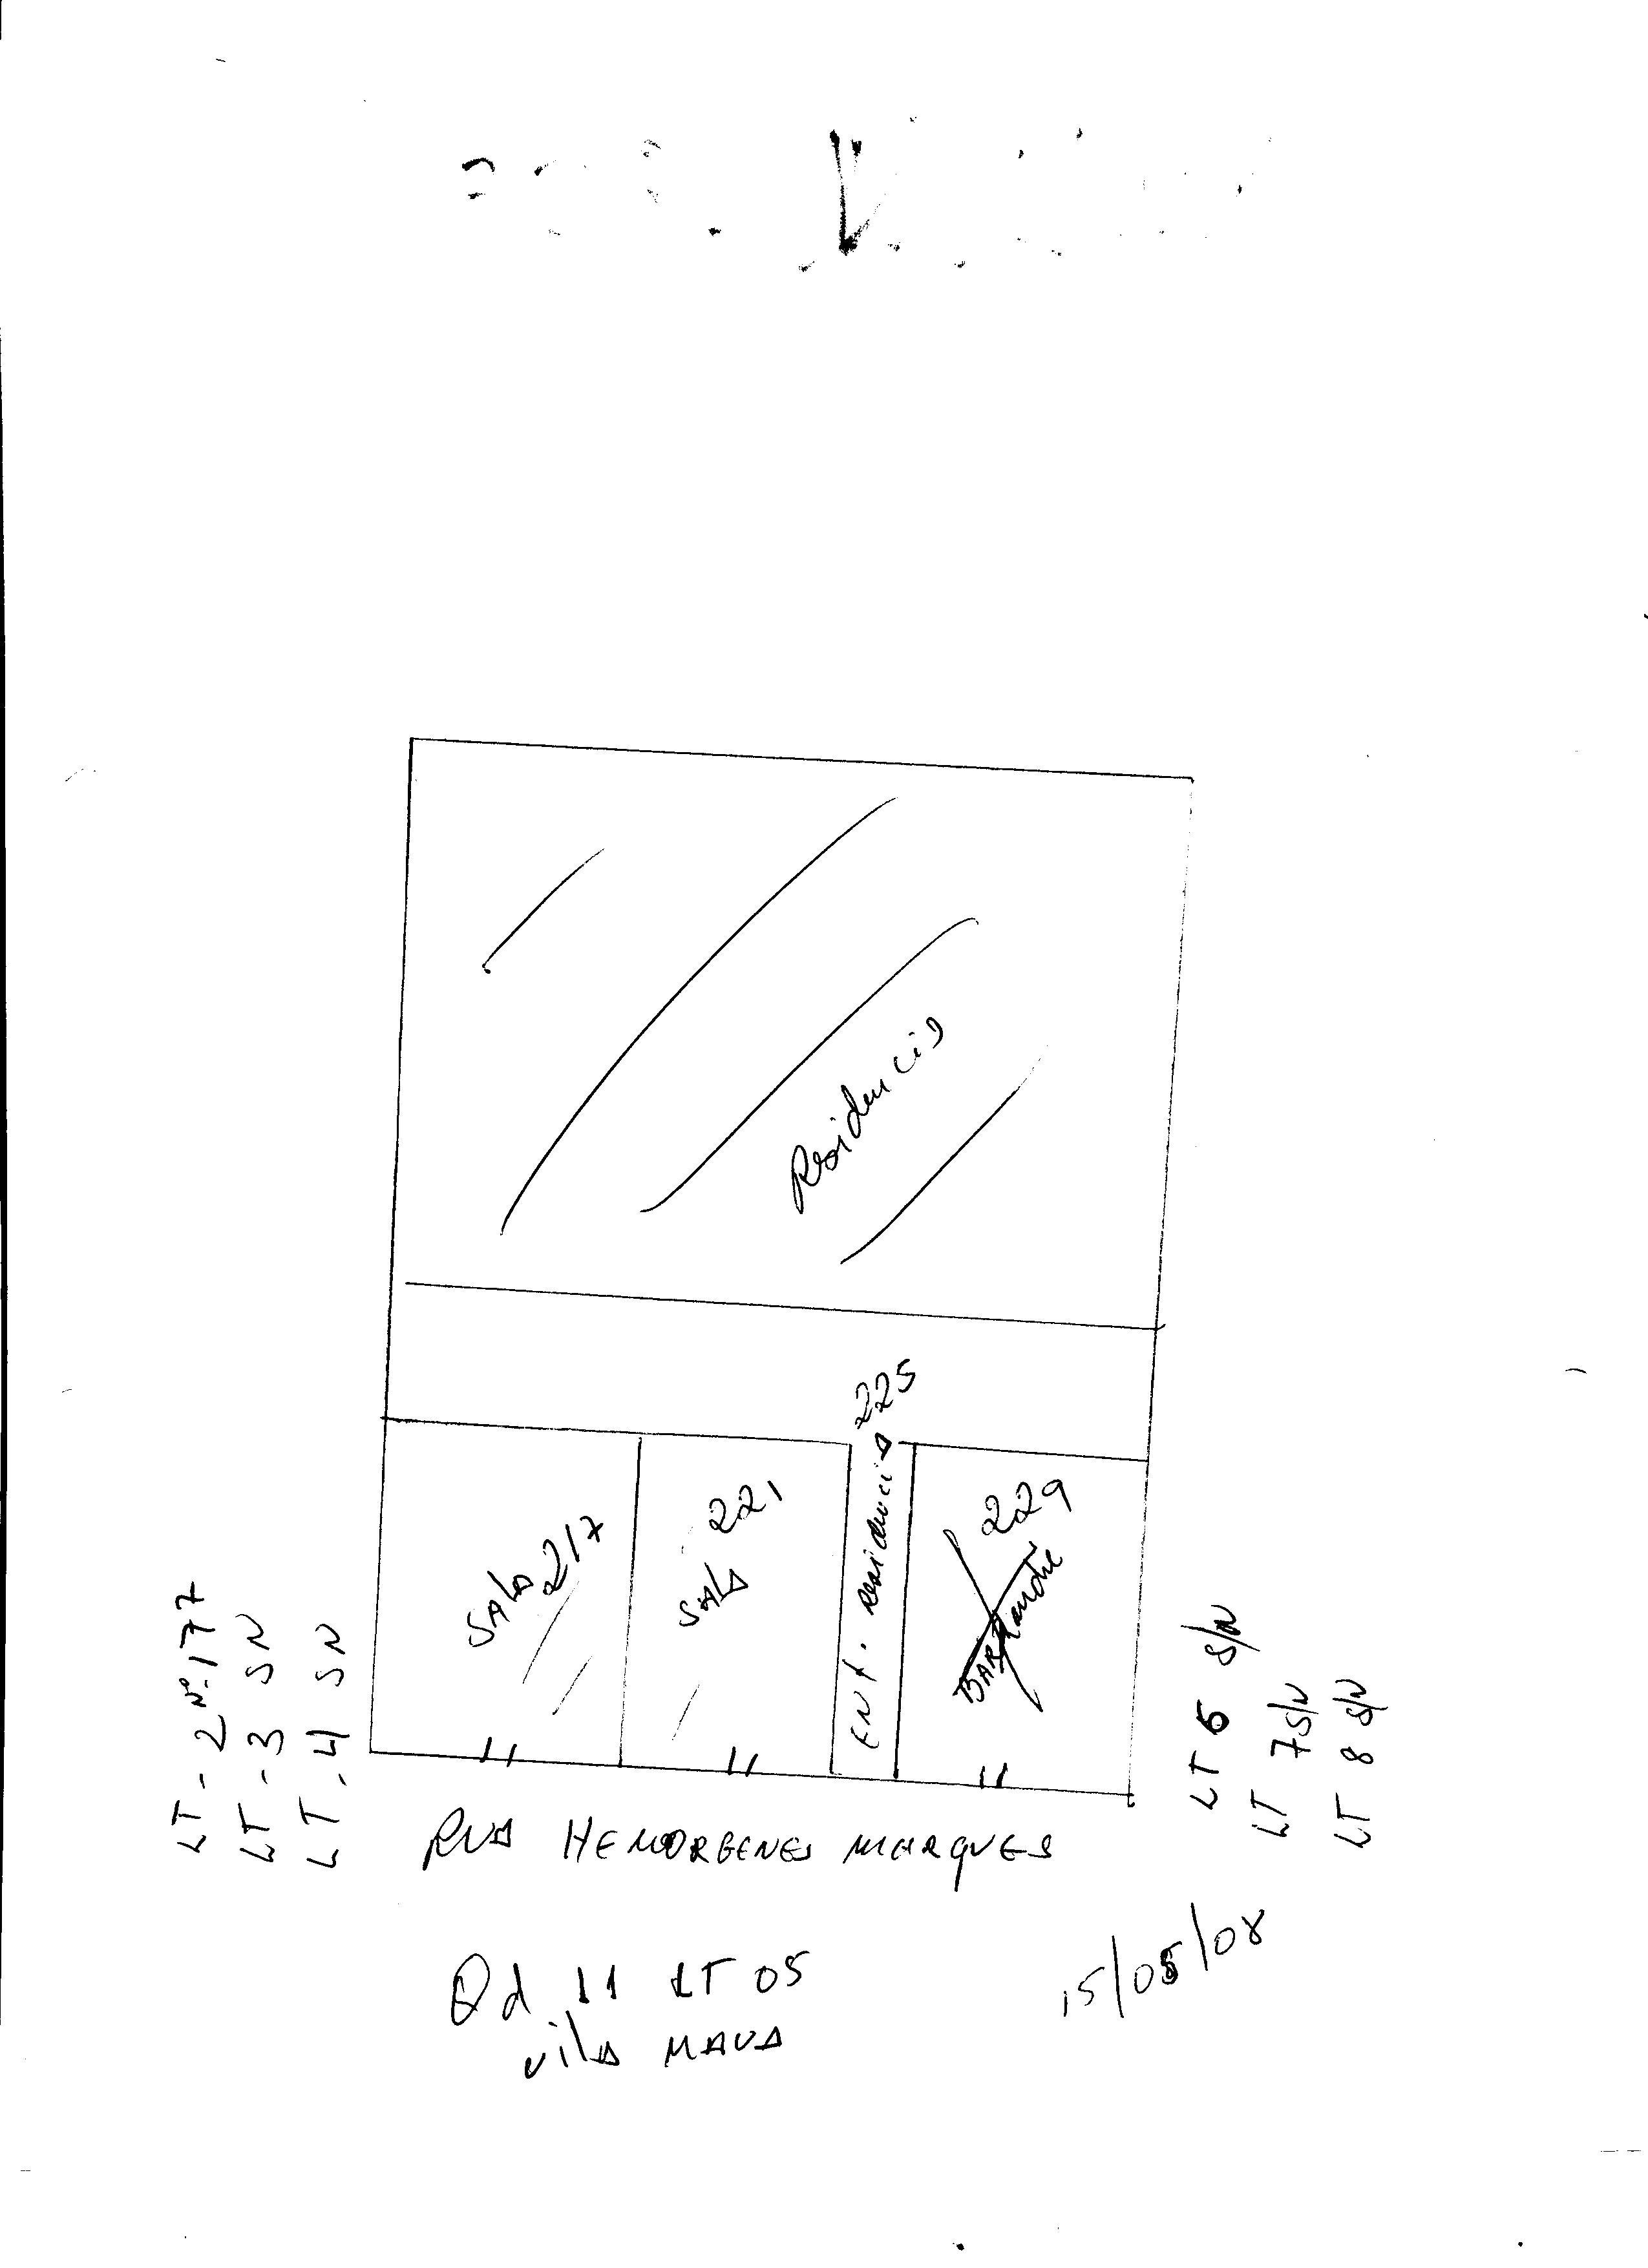 Residencia
225
SALA 217
SALA 221
ENT. Residencia
229
LT - 2 Nº 177
LT - 3 SN
LT - 4 SN
LT 6 S/N
LT 7 S/N
LT 8 S/N
RUA HEMORGENES MARQUES
Qd 11 LT 05
vila MAUA
15/05/08